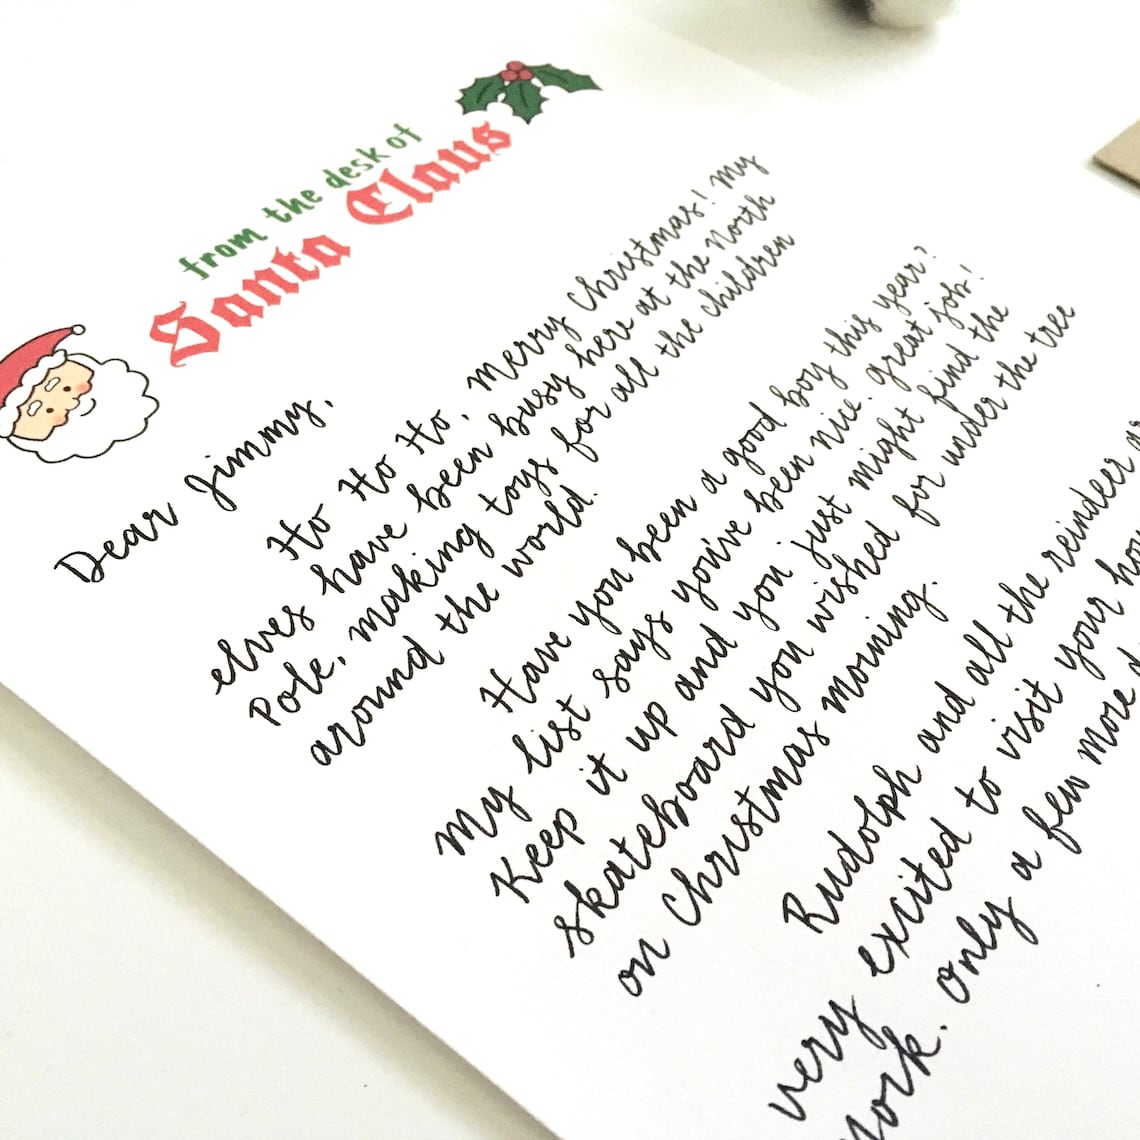 from the desk of
Santa Claus
Dear Jimmy,
Ho Ho Ho, Merry Christmas! My
elves have been busy here at the North
Pole, making toys for all the children
around the world.
Have you been a good boy this year?
My list says you've been nice. Great job!
Keep it up and you just might find the
skateboard you wished for under the tree
on Christmas morning.
Rudolph and all the reindeer
very excited to visit your
York. Only a few more